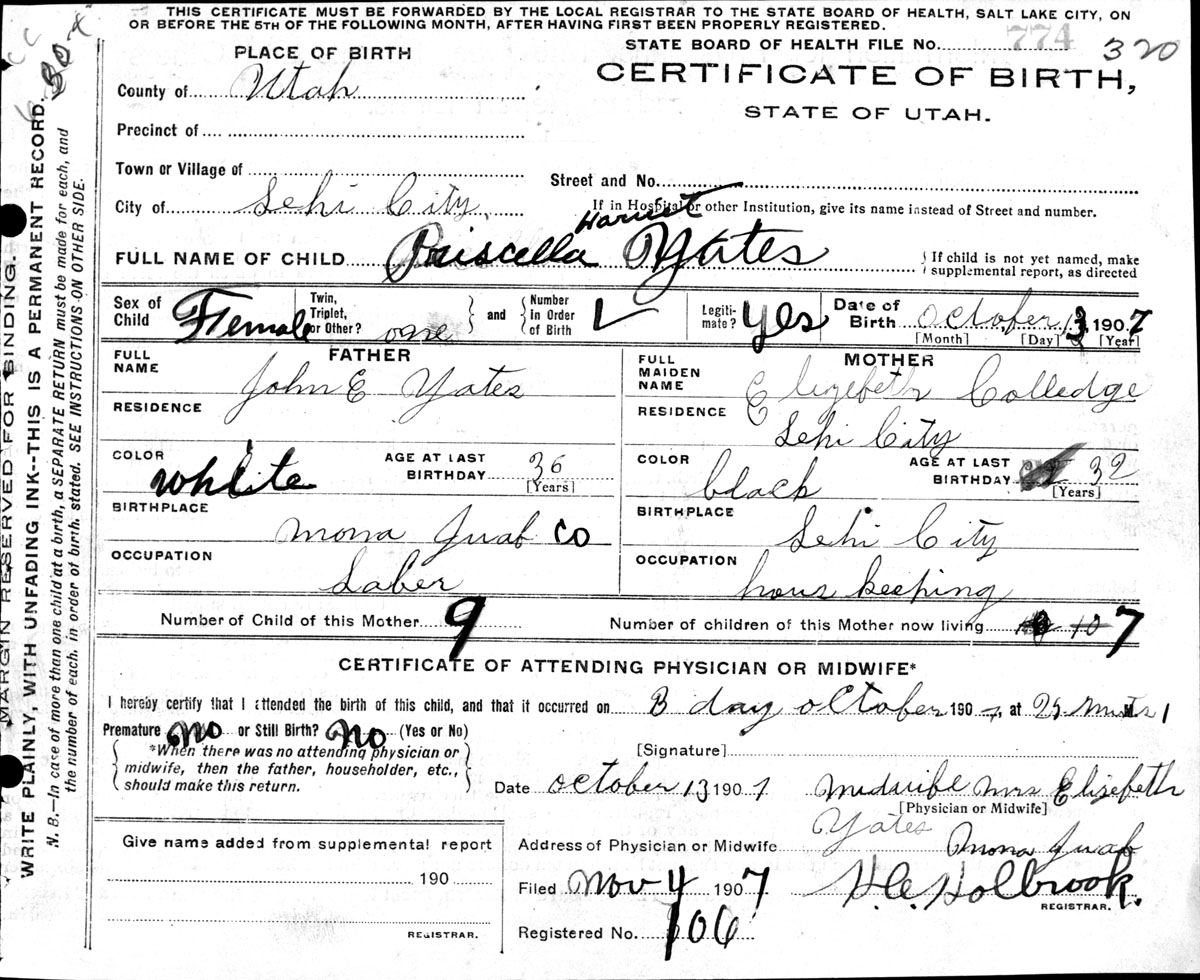 THIS CERTIFICATE MUST BE FORWARDED BY THE LOCAL REGISTRAR TO THE STATE BOARD OF HEALTH, SALT LAKE CITY, ON
OR BEFORE THE 5TH OF THE FOLLOWING MONTH, AFTER HAVING FIRST BEEN PROPERLY REGISTERED.
PLACE OF BIRTH
STATE BOARD OF HEALTH FILE No. 774 320
CERTIFICATE OF BIRTH,
STATE OF UTAH.
County of Utah
Precinct of
Town or Village of
Street and No.
City of Lehi City
If in Hospital or other Institution, give its name instead of Street and number.
Harriet
FULL NAME OF CHILD Priscella Yates
{ If child is not yet named, make
supplemental report, as directed
Sex of Child Female
Twin, Triplet, or Other? one
and
Number in Order of Birth
Legiti-mate? Yes
Date of Birth October 13, 1907
[Month] [Day] [Year]
FATHER
FULL NAME John E Yates
RESIDENCE
COLOR white
AGE AT LAST BIRTHDAY 36
[Years]
BIRTHPLACE Mona Juab CO
OCCUPATION Laber
MOTHER
FULL MAIDEN NAME Elizebeth Colledge
RESIDENCE Lehi City
COLOR black
AGE AT LAST BIRTHDAY 32
[Years]
BIRTHPLACE Lehi City
OCCUPATION hous keeping
Number of Child of this Mother 9
Number of children of this Mother now living 10 7
CERTIFICATE OF ATTENDING PHYSICIAN OR MIDWIFE*
I hereby certify that I attended the birth of this child, and that it occurred on 13 day october 1907, at
Premature No or Still Birth? No (Yes or No)
*When there was no attending physician or
midwife, then the father, householder, etc.,
should make this return.
[Signature]
Date october 13 1907 Midwife Mrs Elizebeth
[Physician or Midwife]
Yates
Address of Physician or Midwife Mona Juab
Give name added from supplemental report
190
REGISTRAR.
Filed Nov 4 1907 H.C. Holbrook.
REGISTRAR.
Registered No. 106
MARGIN RESERVED FOR BINDING.
WRITE PLAINLY, WITH UNFADING INK--THIS IS A PERMANENT RECORD.
N. B.—In case of more than one child at a birth, a SEPARATE RETURN must be made for each, and
the number of each, in order of birth, stated. SEE INSTRUCTIONS ON OTHER SIDE.